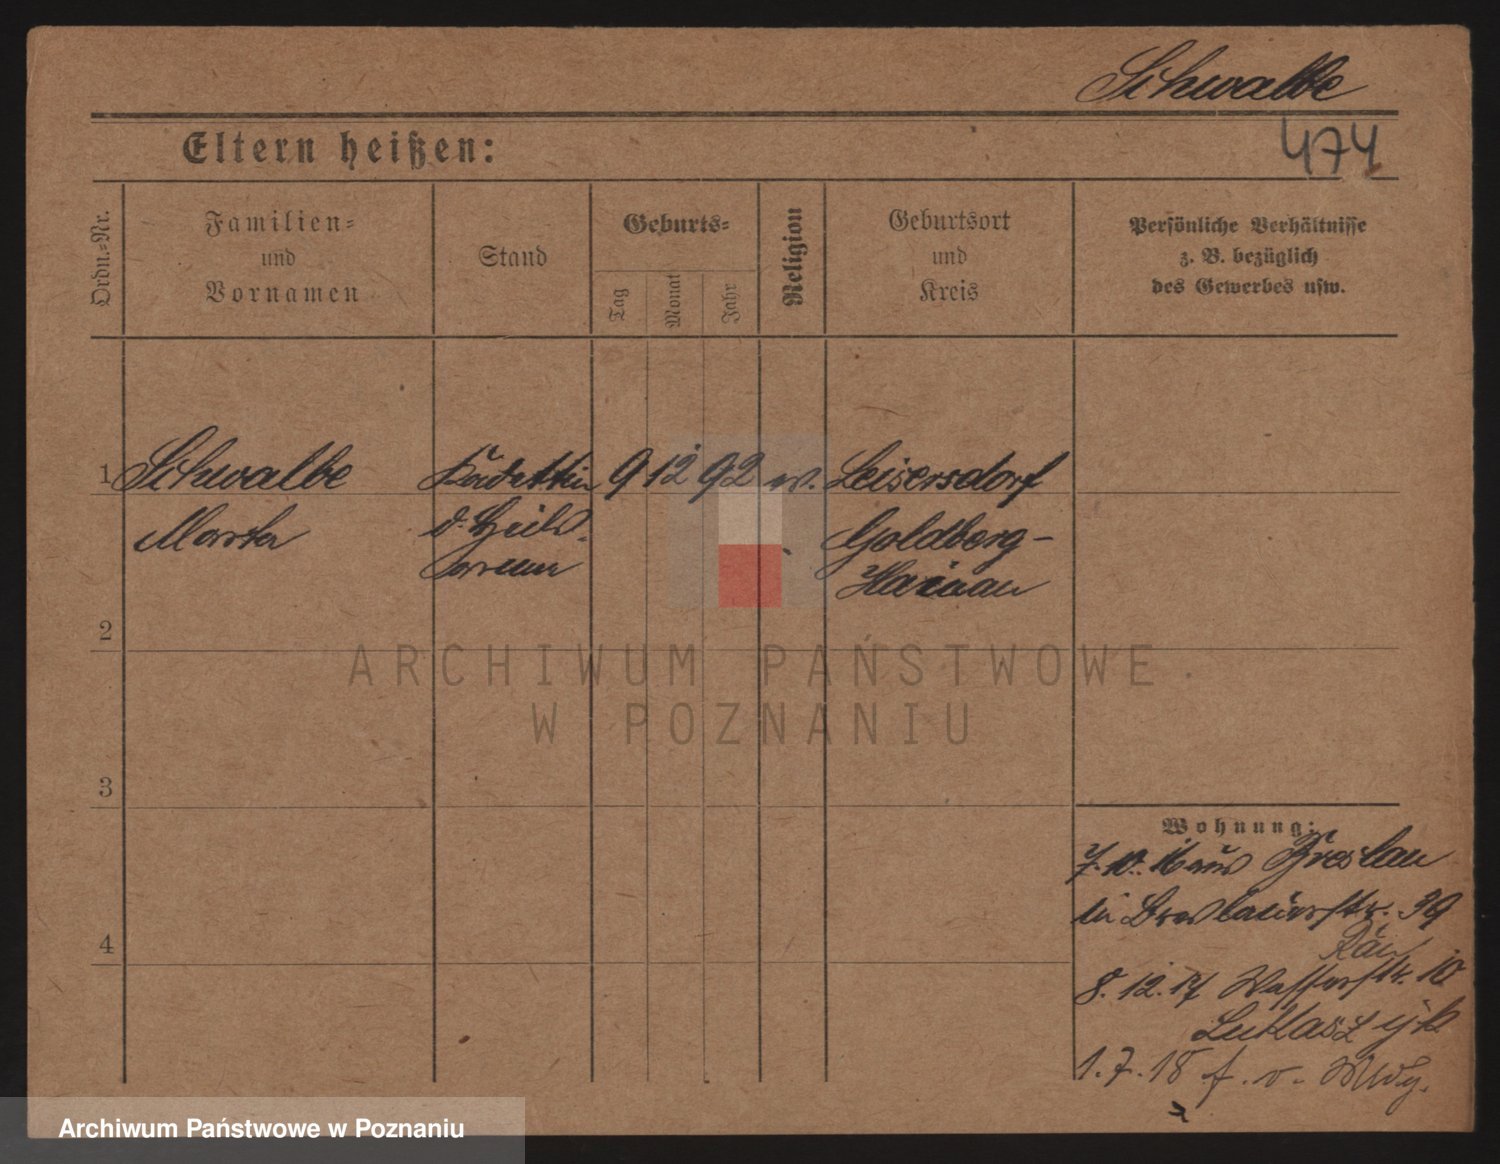 Schwalbe
Eltern heißen:
474
Ordn.-Nr.
Familien-
und
Vornamen
Stand
Geburts-
Tag
Monat
Jahr
Religion
Geburtsort
und
Kreis
Persönliche Verhältnisse
z. B. bezüglich
des Gewerbes usw.
1
Schwalbe
Martha
Kadettin
d. Heils-
armee
9 12 92
ev.
Leisersdorf
Goldberg-
Hainau
2
3
4
Wohnung:
7. 10. 16 aus Breslau
in Breslauerstr. 39
8. 12. 17 Wasserstr. 10
Lukasz
1. 7. 18 f. v.
ARCHIWUM PAŃSTWOWE
W POZNANIU
Archiwum Państwowe w Poznaniu